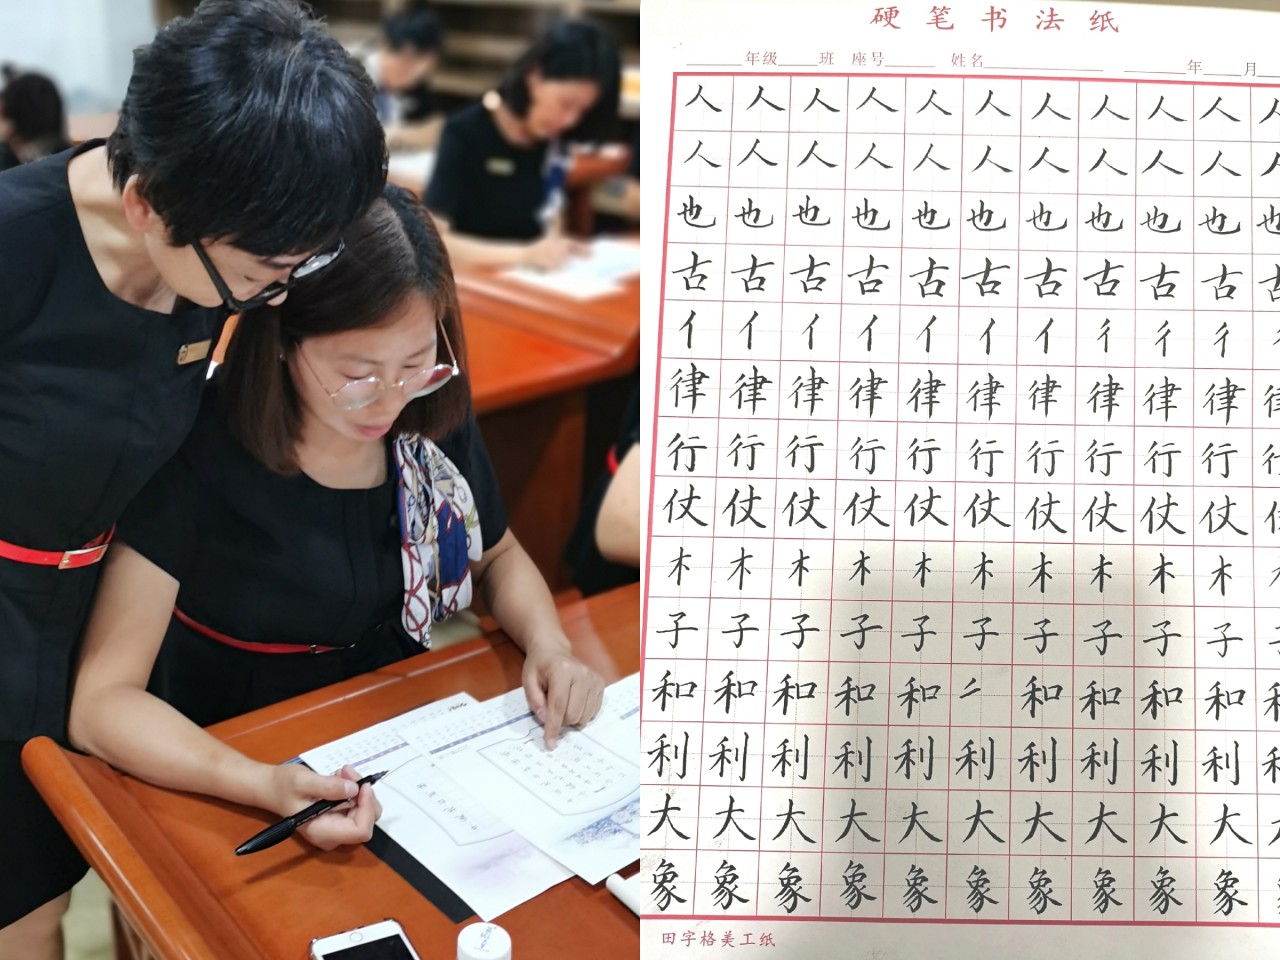 硬笔书法纸
年级 班 座号 姓名 年 月
人人人人人人人人人人人
人人人人人人人人人人人
也也也也也也也也也也也
古古古古古古古古古古古
亻亻亻亻亻亻亻彳彳彳
律律律律律律律律律律律
行行行行行行行行行行行
仗仗仗仗仗仗仗仗仗仗
木木木木木木木木木木
子子子子子子子子子子子
和和和和和 和和和和和
利利利利利利利利利利利
大大大大大大大大大大大
象象象象象象象象象象
田字格美工纸